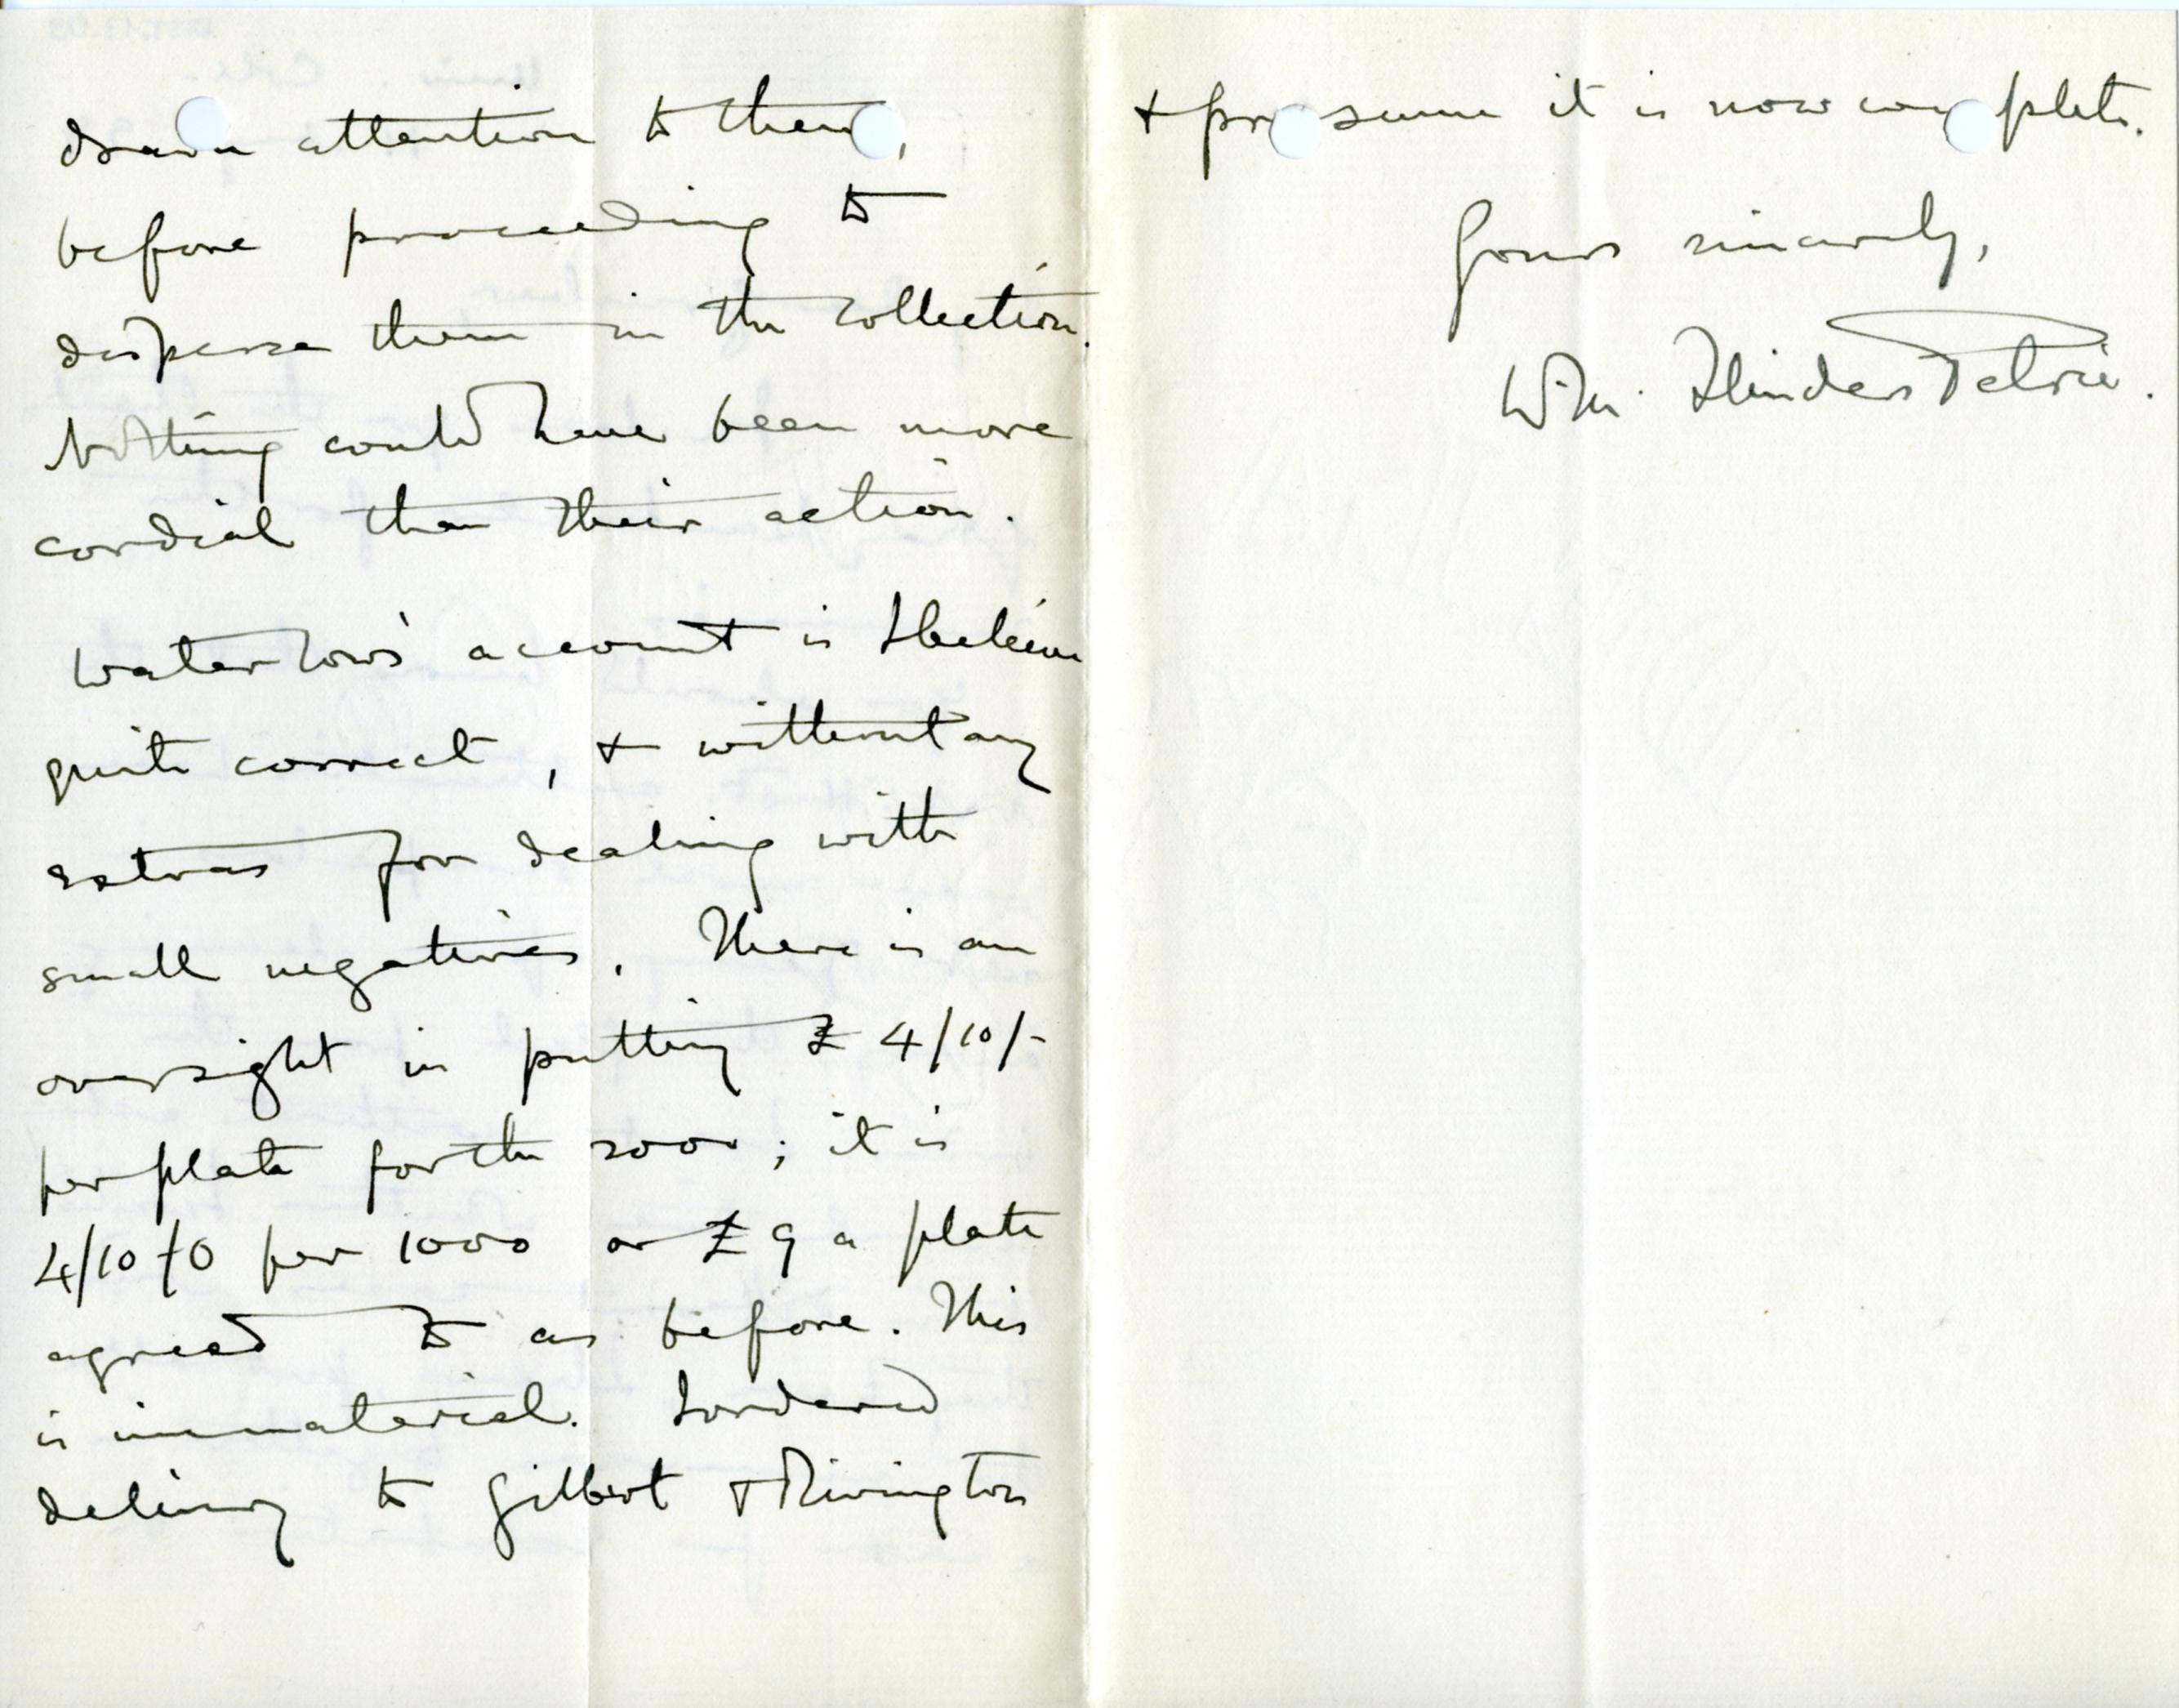 drawn attention to them,
before proceeding to
disperse them in the collection.
Nothing could have been more
cordial than their action.
Waterlow's account is I believe
quite correct, & without any
extras for dealing with
small negatives. There is an
oversight in putting £4/10/-
per plate for the 2000; it is
4/10/0 per 1000 or £9 a plate
agreed to as before. This
is immaterial. I ordered
delivery to Gilbert & Rivington
& presume it is now complete.
Yours sincerely,
W.M. Flinders Petrie.